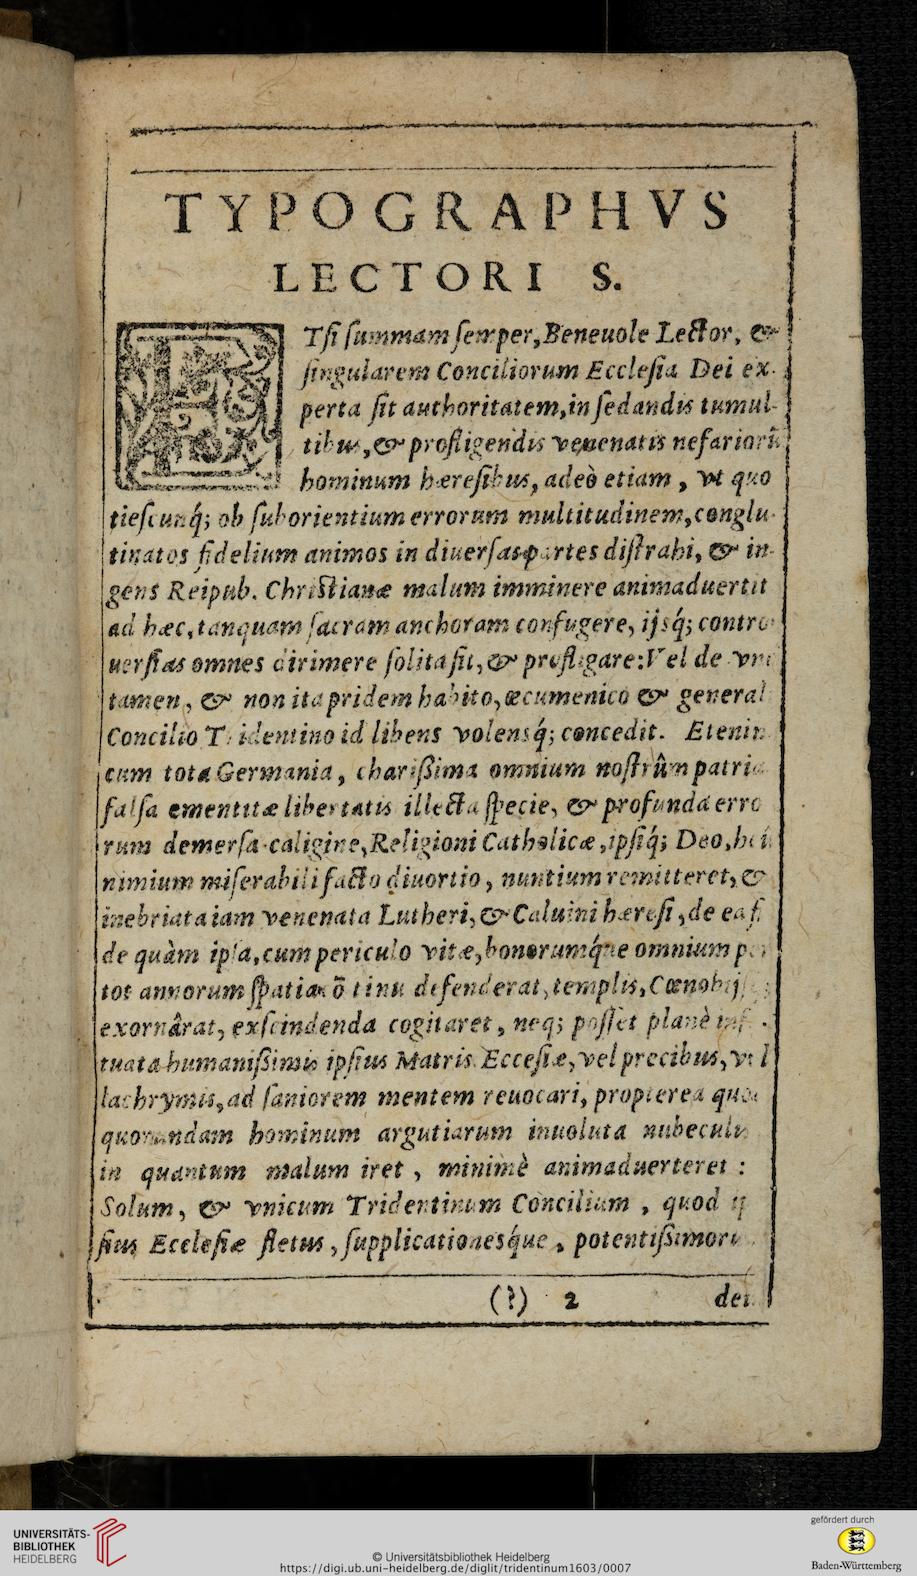 TYPOGRAPHVS
LECTORI S.
ETſi ſummam ſemper, Beneuole Lector, &
ſingularem Conciliorum Eccleſia Dei ex-
perta ſit authoritatem, in ſedandis tumul-
tibus, & profligendis venenatis nefariorũ
hominum hæreſibus, adeò etiam, vt quo
tieſcunq́; ob ſuborientium errorum multitudinem, conglu-
tinatos fidelium animos in diuerſas partes diſtrahi, & in-
gens Reipub. Chriſtianæ malum imminere animaduertit
ad hæc, tanquam ſacram anchoram confugere, ijsq́; contro
uerſias omnes dirimere ſolita ſit, & profligare: Vel de vno
tamen, & non ita pridem habito, œcumenico & general
Concilio Tridentino id libens volensq́; concedit. Etenim
cum tota Germania, chariſsima omnium noſtrûm patria
falſa ementitæ libertatis illecta ſpecie, & profunda erro
rum demerſa caligine, Religioni Catholicæ, ipſiq́; Deo, heu
nimium miſerabili facto diuortio, nuntium remitteret, &
inebriata iam venenata Lutheri, & Caluini hæreſi, de ea fi
de quàm ipſa, cum periculo vitæ, bonorumq́ue omnium per
tot annorum ſpatia defenderat, templis,
exornârat, exſcindenda cogitaret, neq; poſſet planè
tuata humaniſsimis ipſius Matris Ecceſiæ, vel precibus, vel
lachrymis, ad ſaniorem mentem reuocari, propterea quod
quorundam hominum argutiarum inuoluta nubeculis
in quantum malum iret, minimè animaduerteret:
Solum, & vnicum Tridentinum Concilium, quod ip
ſius Eccleſiæ fletus, ſupplicationesq́ue, potentiſsimorum
(?) 2 dei
UNIVERSITÄTS-
BIBLIOTHEK
HEIDELBERG
© Universitätsbibliothek Heidelberg
https://digi.ub.uni-heidelberg.de/diglit/tridentinum1603/0007
gefördert durch
Baden-Württemberg